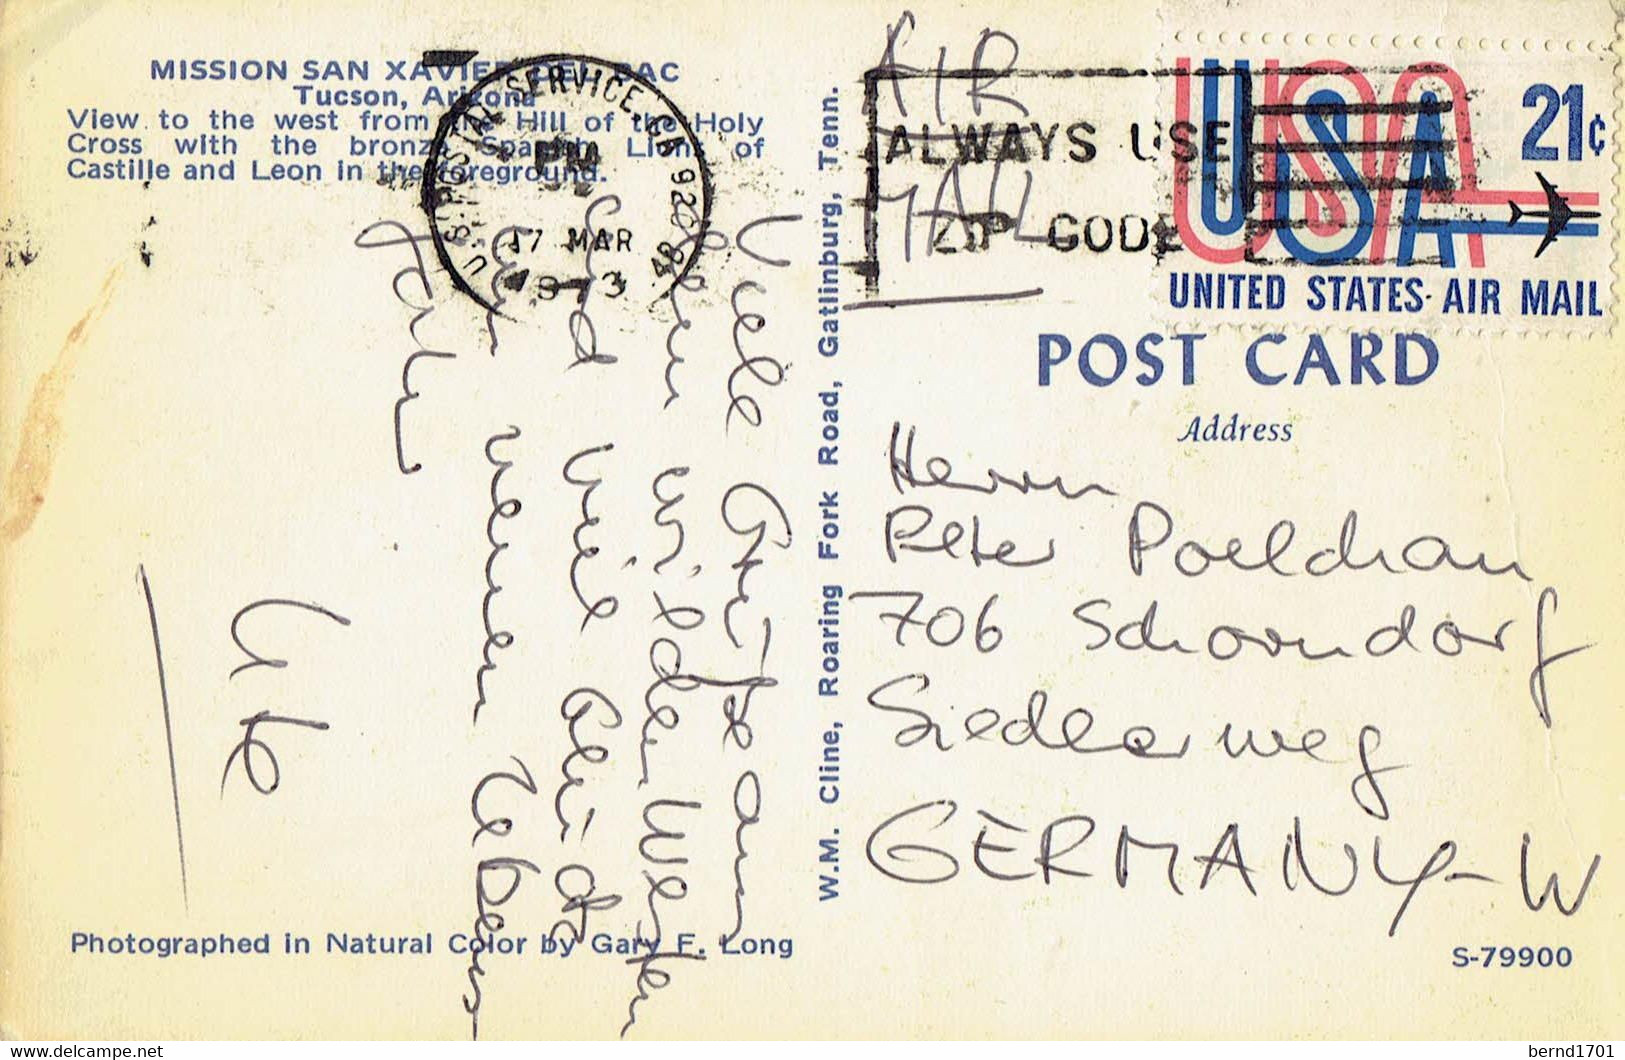 MISSION SAN XAVIER DEL BAC
Tucson, Arizona
View to the west from the Hill of the Holy
Cross with the bronze Spanish Lions of
Castille and Leon in the foreground.
U.S. POSTAL SERVICE, CA 920
PM
17 MAR
1973
AIR
MAIL
ALWAYS USE
ZIP CODE
USA
21¢
UNITED STATES AIR MAIL
POST CARD
Address
Herrn
Peter Poeldrau
706 Schorndorf
Siedlerweg
GERMANY-W
W.M. Cline, Roaring Fork Road, Gatlinburg, Tenn.
Viele Grüße aus
dem wilden Westen
und viel Glück
im neuen Lebens-
jahr.
Ute
Photographed in Natural Color by Gary F. Long
S-79900
bernd1701